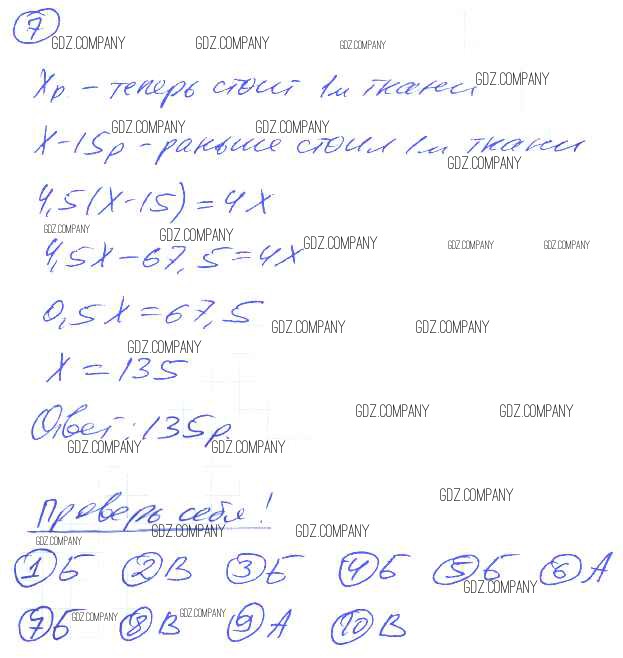 7
GDZ.COMPANY GDZ.COMPANY GDZ.COMPANY
Xр - теперь стоит 1м ткани GDZ.COMPANY
GDZ.COMPANY GDZ.COMPANY
X-15р - раньше стоил 1м ткани
GDZ.COMPANY
4,5(X-15)=4X
GDZ.COMPANY GDZ.COMPANY GDZ.COMPANY GDZ.COMPANY GDZ.COMPANY
4,5X-67,5=4X
0,5X=67,5
GDZ.COMPANY GDZ.COMPANY
GDZ.COMPANY
X=135
GDZ.COMPANY GDZ.COMPANY
Ответ: 135р.
GDZ.COMPANY GDZ.COMPANY
GDZ.COMPANY
Проверь себя!
GDZ.COMPANY GDZ.COMPANY
GDZ.COMPANY
1 Б 2 В 3 Б 4 Б 5 Б 6 А
GDZ.COMPANY
7 Б GDZ.COMPANY 8 В GDZ.COMPANY 9 А 10 В